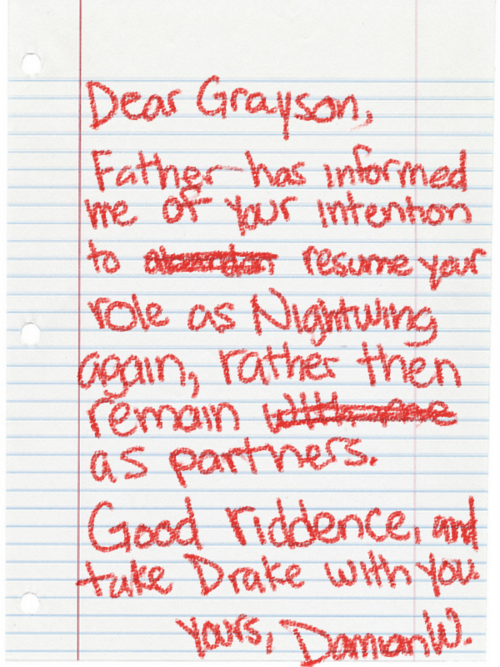 Dear Grayson,
Father has informed
me of your intention
to resume your
role as Nightwing
again, rather then
remain with me
as partners.
Good riddence, and
take Drake with you
Yours, Damian W.